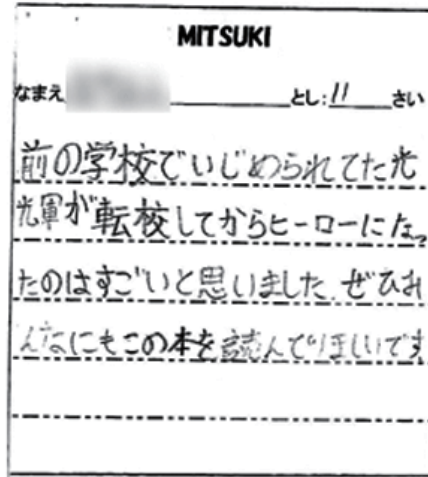 MITSUKI
なまえ とし:11 さい
前の学校でいじめられてた光
光軍が転校してからヒーローになっ
たのはすごいと思いました。ぜひみ
んなにもこの本を読んでほしいです